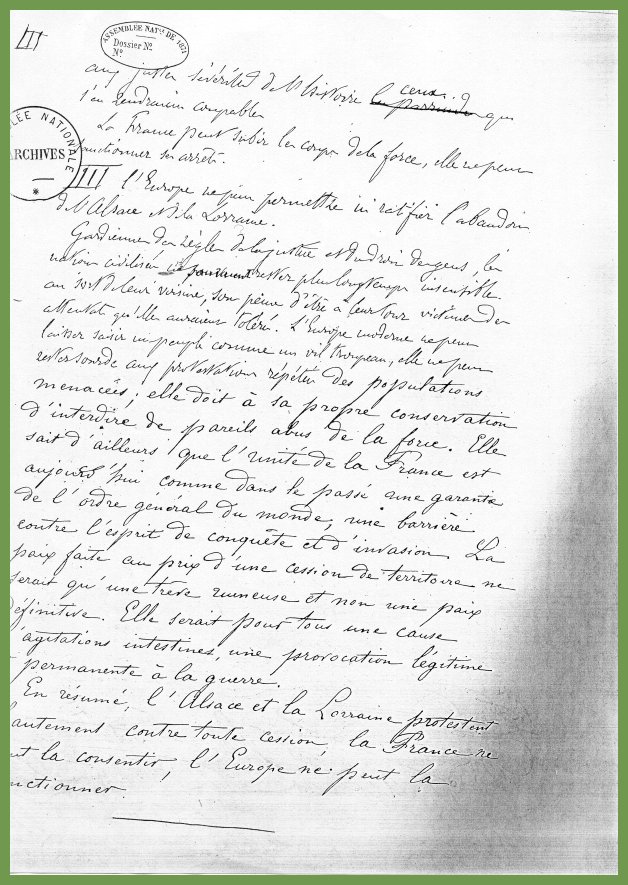 III
ASSEMBLÉE NATle DE 1871
Dossier No
No
aux justes sévérités de l'histoire ceux qui
s'en rendraient coupables
La France peut subir les coups de la force, elle ne peut
sanctionner ses arrêts.
LÉE NATIONALE
ARCHIVES
*
III L'Europe ne peut permettre ni ratifier l'abandon
de l'Alsace et de la Lorraine.
Gardiennes des règles de la justice et du droit des gens, les
nations civilisées ne rester plus longtemps insensibles
au sort de leur voisine, sous peine d'être à leur tour victimes des
attentats qu'elles auraient toléré. L'Europe moderne ne peut
laisser saisir un peuple comme un vil troupeau, elle ne peut
rester sourde aux protestations répétées des populations
menacées; elle doit à sa propre conservation
d'interdire de pareils abus de la force. Elle
sait d'ailleurs que l'unité de la France est
aujourd'hui comme dans le passé une garantie
de l'ordre général du monde, une barrière
contre l'esprit de conquête et d'invasion. La
paix faite au prix d'une cession de territoire ne
serait qu'une trêve ruineuse et non une paix
définitive. Elle serait pour tous une cause
d'agitations intestines, une provocation légitime
permanente à la guerre.
En résumé, l'Alsace et la Lorraine protestent
hautement contre toute cession, la France ne
ut la consentir, l'Europe ne peut la
nctionner.